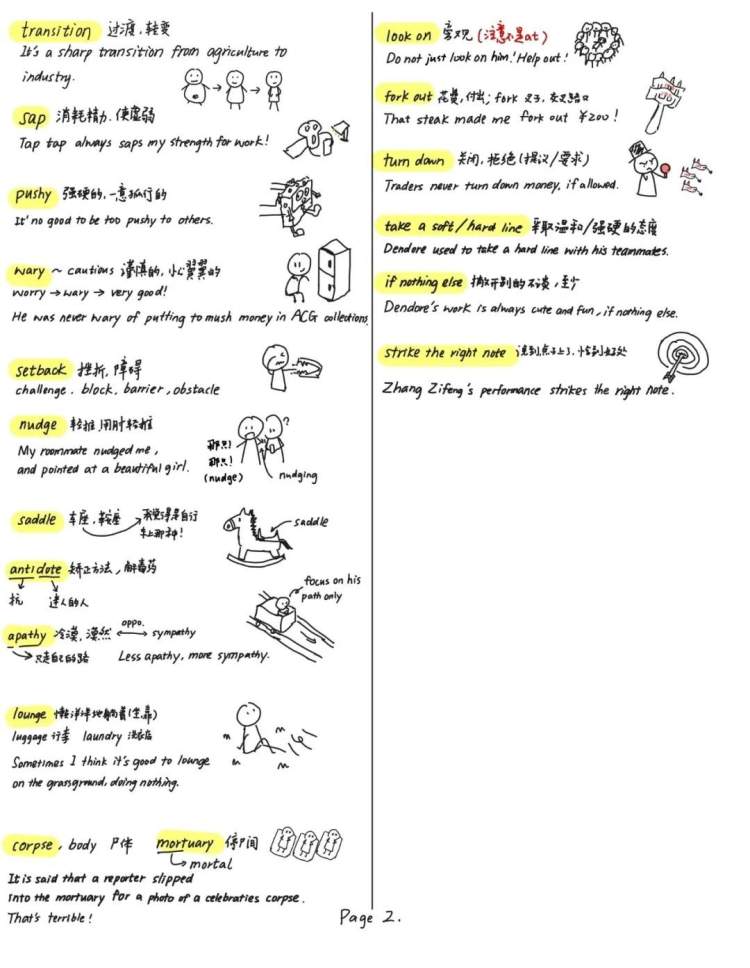 transition 过渡，转变
It's a sharp transition from agriculture to
industry.
sap 消耗精力，使虚弱
Tap tap always saps my strength for work!
pushy 强硬的，一意孤行的
It' no good to be too pushy to others.
wary ~ cautious 谨慎的，小心翼翼的
worry → wary → very good!
He was never wary of putting to mush money in ACG collections,
setback 挫折，障碍
challenge. block, barrier, obstacle
nudge 轻推，用肘轻推
My roommate nudged me,
and pointed at a beautiful girl.
那只!
那只!
(nudge)
?
nudging
saddle 车座，鞍座
车上那种!
saddle
antidote 矫正方法，解毒药
抗 迷人的人
focus on his
path only
apathy 冷漠，漠然 oppo. sympathy
只走自己的路 Less apathy, more sympathy.
lounge 懒洋洋地躺着(坐靠)
luggage 行李 laundry 洗衣店
Sometimes I think it's good to lounge
on the grassground, doing nothing.
corpse, body 尸体 mortuary 停尸间
mortal
It is said that a reporter slipped
into the mortuary for a photo of a celebraties corpse.
That's terrible!
look on 旁观 (注意不是at)
Do not just look on him! Help out!
fork out 花费，付出; fork 叉子，岔路口
That steak made me fork out ¥200!
turn down 关闭，拒绝(提议/要求)
Traders never turn down money, if allowed.
take a soft/hard line 采取温和/强硬的态度
Dendore used to take a hard line with his teammates.
if nothing else 撇开别的不谈，至少
Dendore's work is always cute and fun, if nothing else.
strike the right note 说到点子上了，恰到好处
Zhang Zifeng's performance strikes the right note.
Page 2.